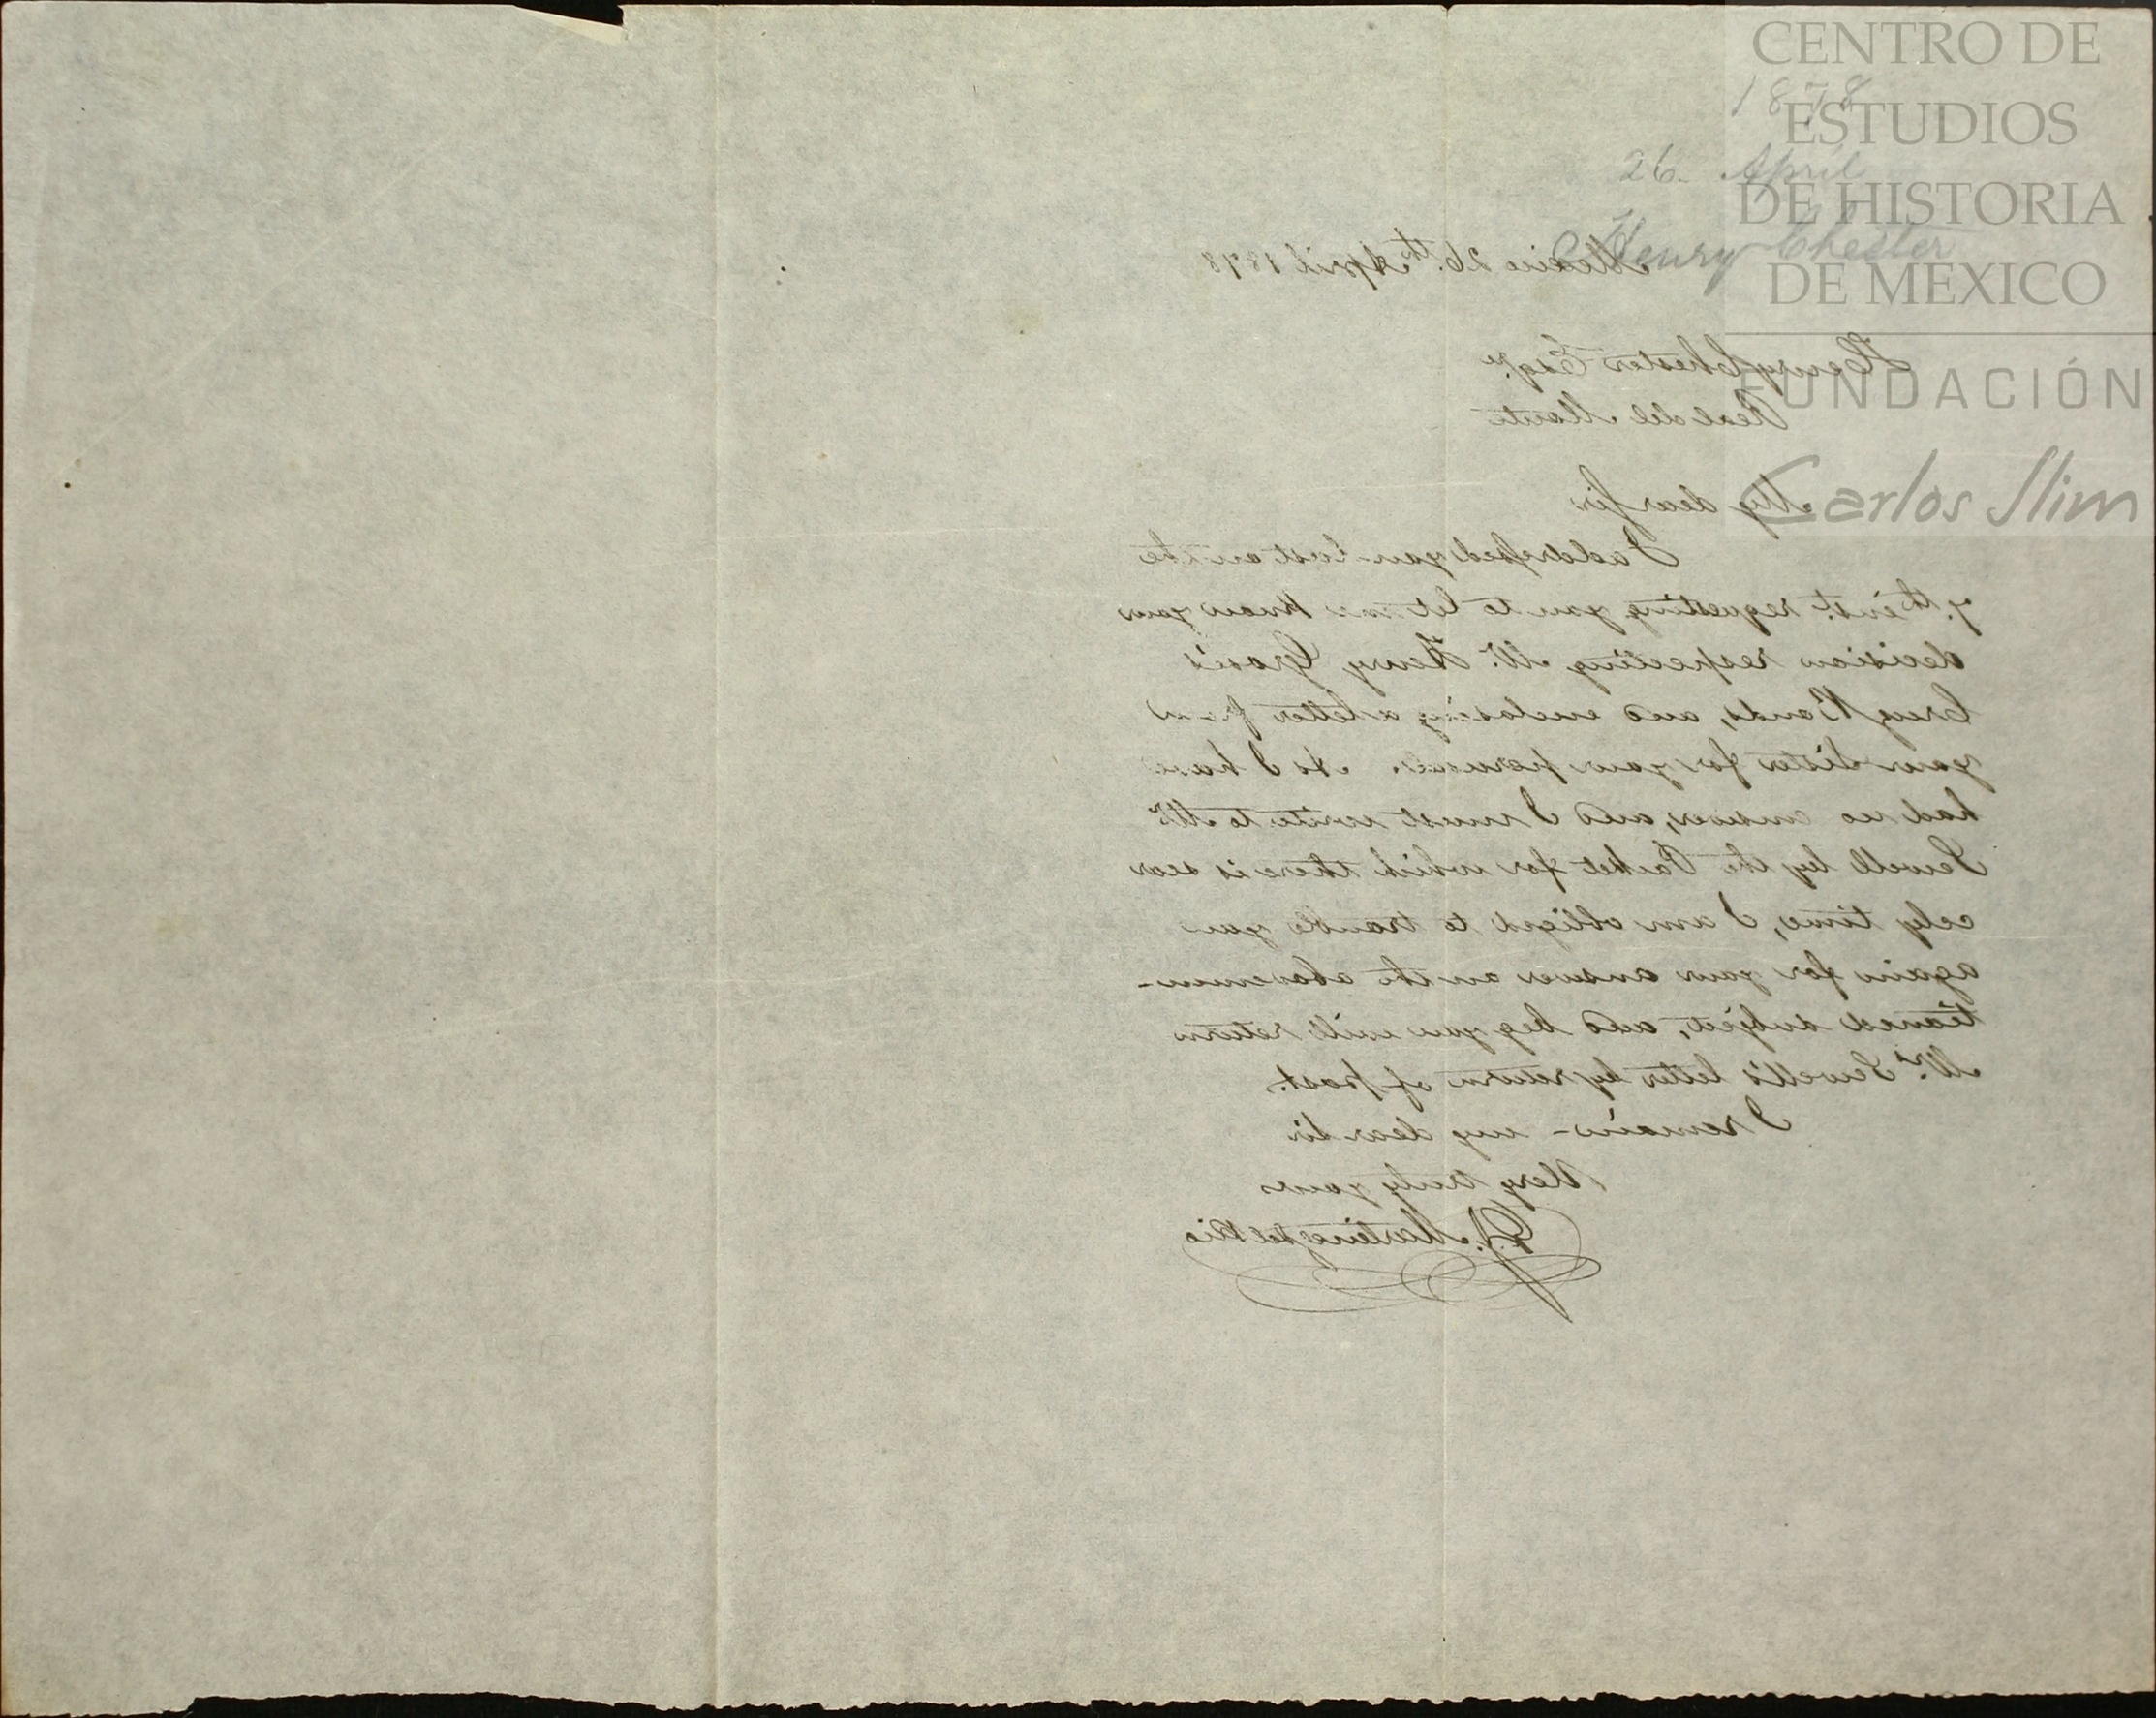 CENTRO DE
ESTUDIOS
DE HISTORIA
DE MEXICO
FUNDACIÓN
Carlos Slim
1878
26 - April
Henry Chester
Mexico 26.th April 1878
Henry Chester Esqr.
Real del Monte
My dear Sir
I addressed you last on the
7.th inst. requesting you to let me know your
decision respecting Mr. Henry Grose's
Bonds, and enclosing a letter from
your sister for your perusal. As I have
had no answer, and I must write to Mr
Sewell by the Packet for which there is scar
cely time, I am obliged to trouble you
again for your answer on the abovemen-
tioned subject, and beg you will return
Mrs. Sewell's letter by return of post.
I remain - my dear Sir
Very truly yours
Martinez del Rio